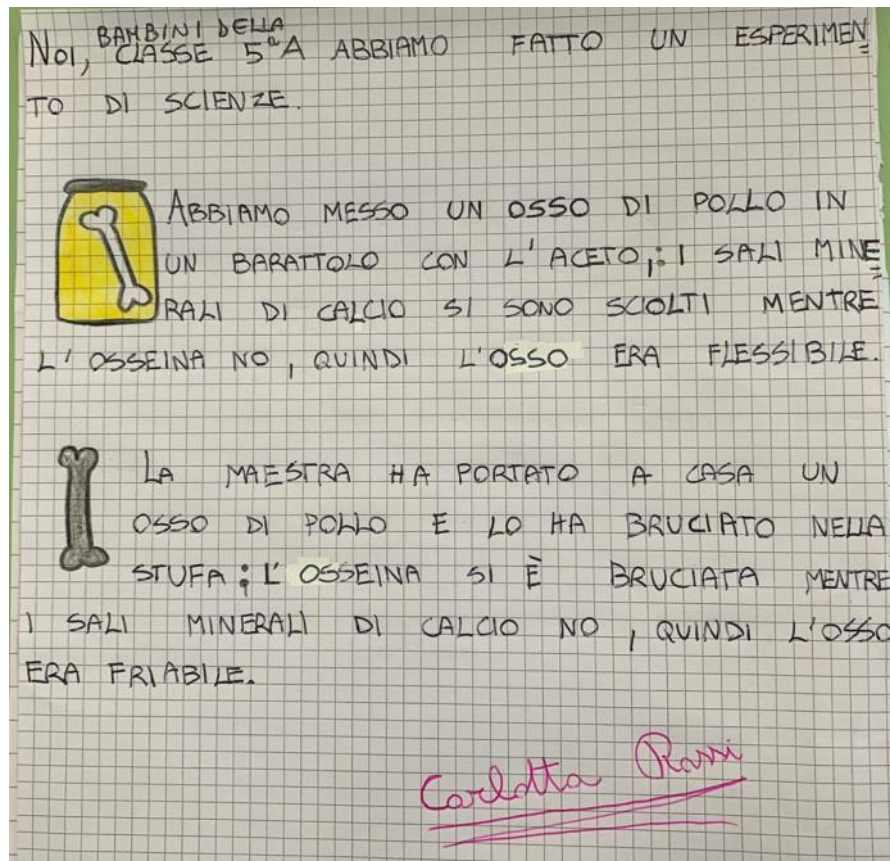 NOI, BAMBINI DELLA
CLASSE 5ªA ABBIAMO FATTO UN ESPERIMEN=
TO DI SCIENZE.
ABBIAMO MESSO UN OSSO DI POLLO IN
UN BARATTOLO CON L'ACETO,: I SALI MINE=
RALI DI CALCIO SI SONO SCIOLTI MENTRE
L'OSSEINA NO, QUINDI L'OSSO ERA FLESSIBILE.
LA MAESTRA HA PORTATO A CASA UN
OSSO DI POLLO E LO HA BRUCIATO NELLA
STUFA: L'OSSEINA SI È BRUCIATA MENTRE
I SALI MINERALI DI CALCIO NO, QUINDI L'OSSO
ERA FRIABILE.
Carlotta Rossi